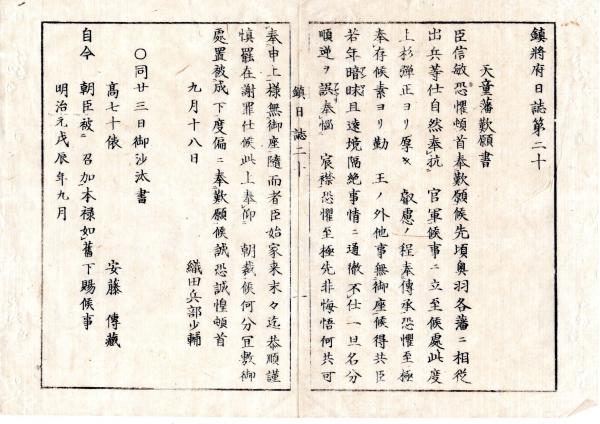 鎮将府日誌第二十
天童藩歎願書
臣信敏恐懼頓首奉歎願候先頃奥羽各藩ニ相従
出兵等仕自然奉抗　官軍候事ニ立至候處此度
上杉弾正ヨリ厚キ　叡慮ノ程奉傳承恐懼至極
奉存候素ヨリ勤　王ノ外他事無御座候得共臣
若年暗昧且遠境隔絶事情ニ通徹不仕一旦名分
順逆ヲ誤奉悩　宸襟恐懼至極先非悔悟何共可
鎮日誌二十
奉申上様無御座随而者臣始家来末々迄恭順謹
慎罷在謝罪仕候此上奉仰　朝裁候何分宜敷御
處置被成下度偏ニ奉歎願候誠恐誠惶頓首
九月十八日
織田兵部少輔
○同廿三日御沙汰書
高七十俵
安藤　傳蔵
自今　朝臣被ニ召加本禄如舊下賜候事
明治元戊辰年九月